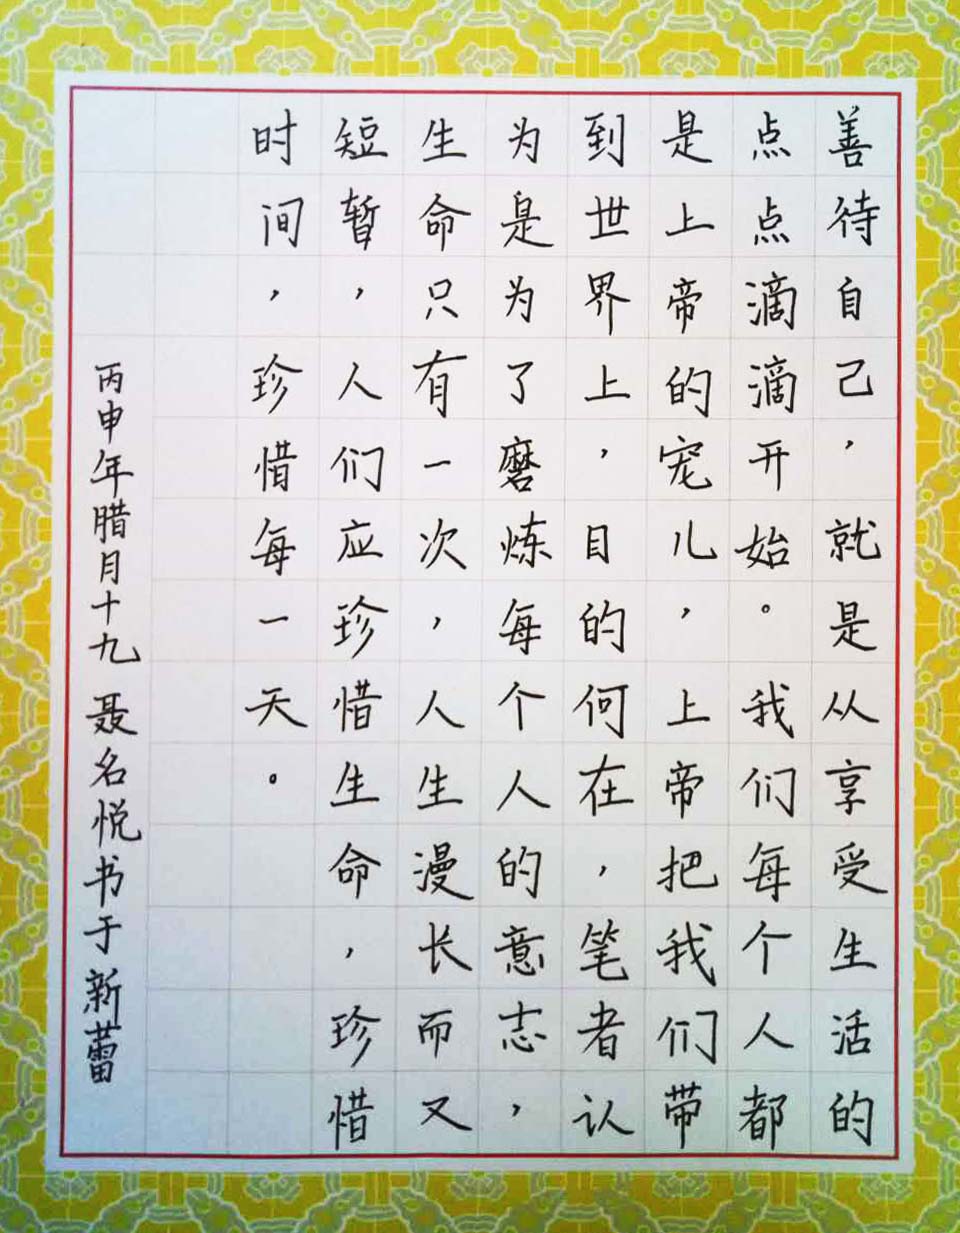 善待自己，就是从享受生活的
点点滴滴开始。我们每个人都
是上帝的宠儿，上帝把我们带
到世界上，目的何在，笔者认
为是为了磨炼每个人的意志，
生命只有一次，人生漫长而又
短暂，人们应珍惜生命，珍惜
时间，珍惜每一天。
丙申年腊月十九 聂名悦书于新蕾